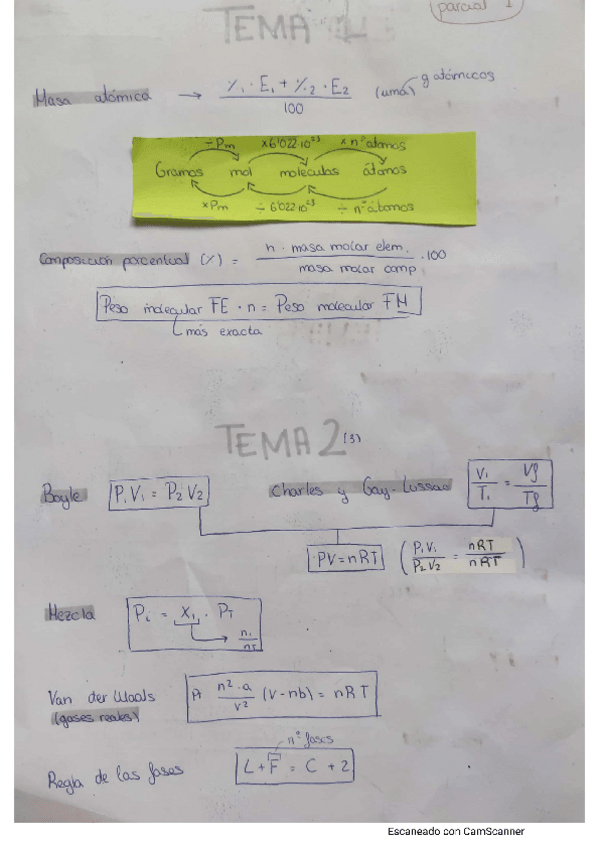 parcial 1
TEMA 1
Masa atómica → %1 · E1 + %2 · E2 / 100 (uma) g atómicos
÷Pm x6'022·10²³ x nº átomos
Gramos mol moléculas átomos
xPm ÷ 6'022·10²³ ÷ nº átomos
Composición porcentual (%) = n · masa molar elem. / masa molar comp · 100
Peso molecular FE · n = Peso molecular FM
más exacta
TEMA 2 (3)
Boyle P1 V1 = P2 V2 Charles y Gay-Lussac V1 / T1 = Vf / Tf
PV = nRT ( P1V1 / P2V2 = nRT / nRT )
Mezcla Pi = Xi · PT
ni / nT
Van der Waals (gases reales) A n²·a / v² (v-nb) = nRT
nº fases
Regla de las fases L + F = C + 2
Escaneado con CamScanner